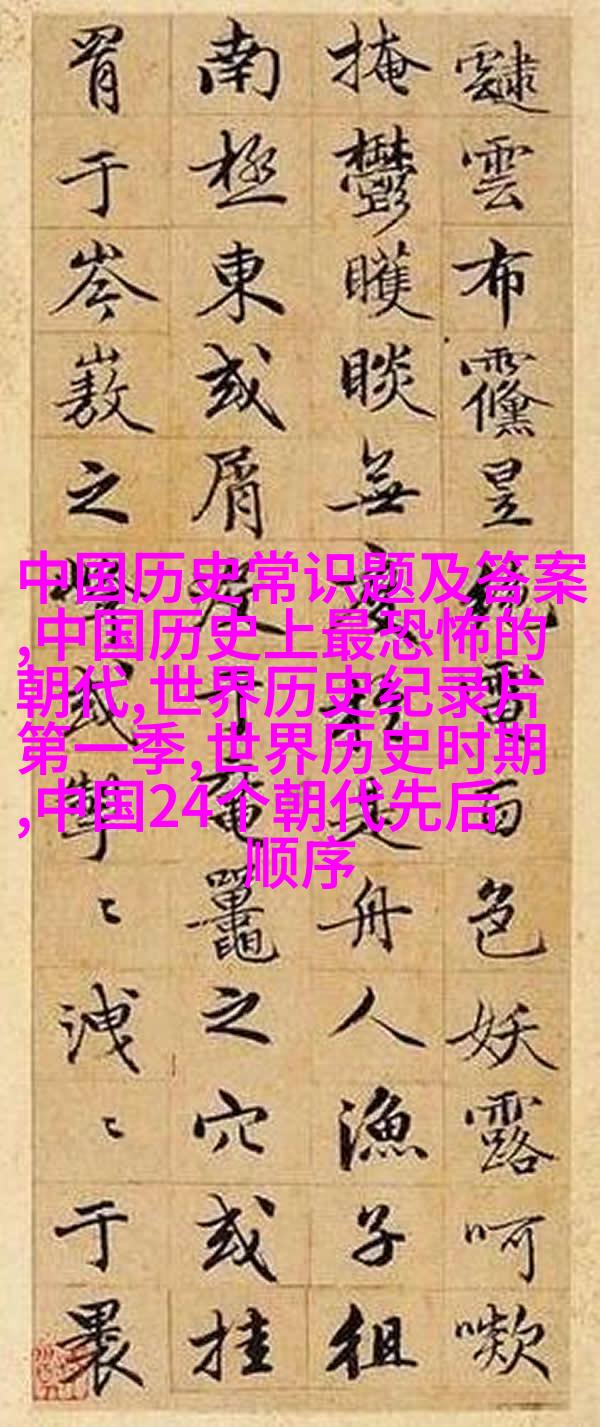 雲布昱百色妖露呵
掩鬱矆睒無度於是舟人漁子徂
南極東或屑沒于黿鼉之穴或挂
罥于岑嶅之峰或掣〻洩〻于
中国历史常识题及答案
,中国历史上最恐怖的
朝代,世界历史纪录片
第一季,世界历史时期
,中国24个朝代先后
顺序